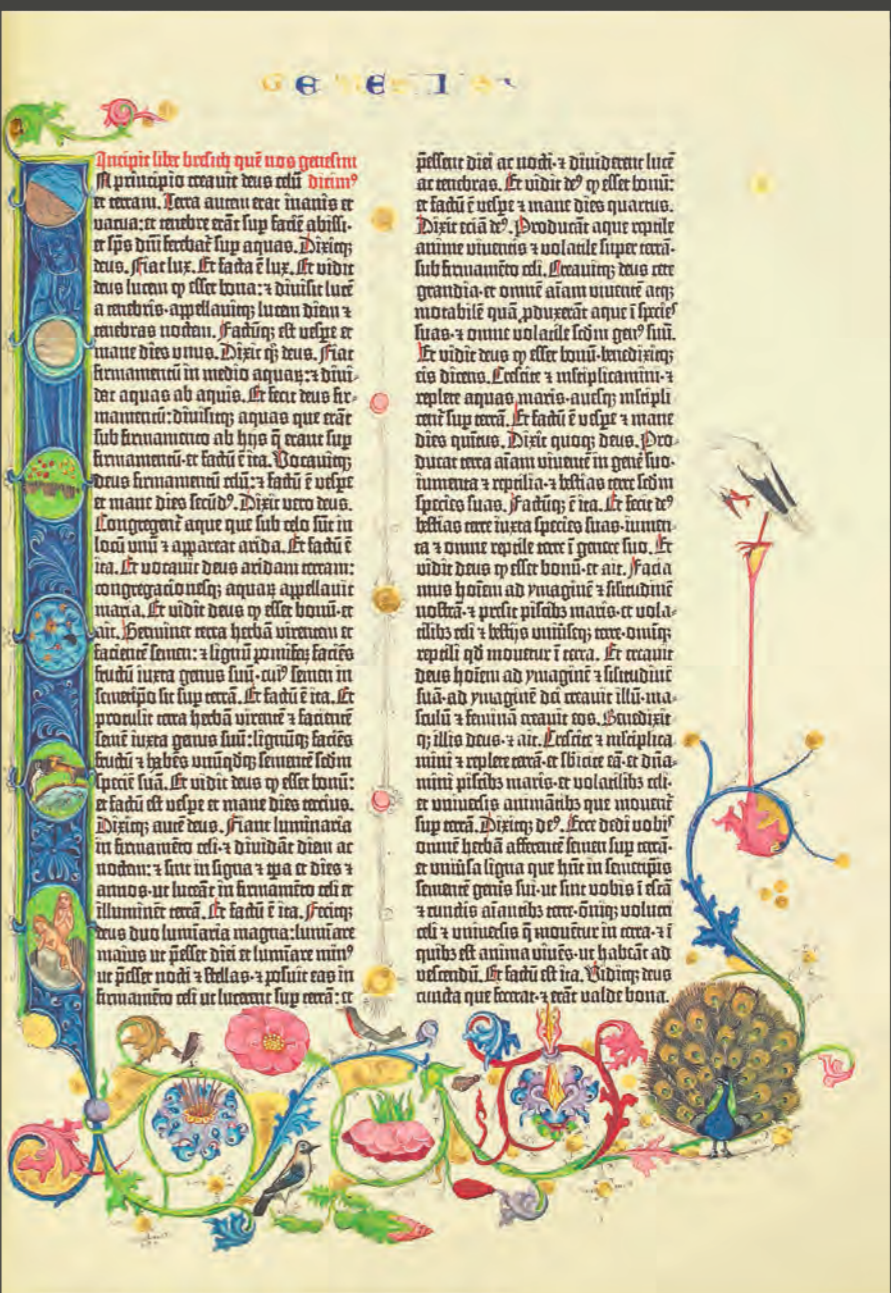 GENESIS
Incipit liber bresith quē nos genesim
IN principio creauit deus celū dicimꝰ
et terram. Terra autem erat inanis et
vacua: et tenebre erāt sup faciē abissi·
et sp̄s dn̄i ferebat᷑ sup aquas. Dixitqꝫ
deus. Fiat lux. Et facta ē lux. Et vidit
deus lucem ꝙ esset bona: ⁊ diuisit lucē
a tenebris·appellauitqꝫ lucem diem ⁊
tenebras noctem. Factūqꝫ est vespe et
mane dies vnus. Dixit qꝫ deus. Fiat
firmamentū in medio aquaꝝ: ⁊ diui-
dat aquas ab aquis. Et fecit deus fir-
mamentū: diuisitqꝫ aquas que erāt
sub firmamento ab hijs q̄ erant sup
firmamentū· et factū ē ita. Vocauitqꝫ
deus firmamentū celū: ⁊ factū ē vespe
et mane dies secūdꝰ. Dixit vero deus.
Congregent᷑ aque que sub celo sūt in
locū vnū ⁊ appareat arida. Et factū ē
ita. Et vocauit deus aridam terram:
congregacionesqꝫ aquaꝝ appellauit
maria. Et vidit deus ꝙ esset bonū· et
ait. Germinet terra herbā virentem et
facientē semen: ⁊ lignū pomifeꝝ faciēs
fructū iuxta genus suū· cuiꝰ semen in
semetip̄o sit sup terrā. Et factū ē ita. Et
protulit terra herbā virentē ⁊ facientē
semē iuxta genus suū: lignūqꝫ faciēs
fructū ⁊ habēs vnūqdqꝫ sementē scd̄m
speciē suā. Et vidit deus ꝙ esset bonū:
et factū est vespe et mane dies tercius.
Dixitqꝫ autē deus. Fiant luminaria
in firmamēto celi· ⁊ diuidāt diem ac
noctem: ⁊ sint in signa ⁊ tp̄a et dies ⁊
annos· ut luceāt in firmamēto celi et
illuminēt terrā. Et factū ē ita. Fecitqꝫ
deus duo lumīaria magna: lumīare
maius ut p̄esset diei et lumīare minꝰ
ut p̄esset nocti ⁊ stellas· ⁊ posuit eas in
firmamēto celi ut lucerent sup terrā: et
p̄essent diei ac nocti· ⁊ diuiderent lucē
ac tenebras. Et vidit deꝰ ꝙ esset bonū:
et factū ē vespe ⁊ mane dies quartus.
Dixit eciā deꝰ. Producāt aque reptile
anime viuentis ⁊ volatile super terrā·
sub firmamēto celi. Creauitqꝫ deus cete
grandia· et omnē aīam viuentē atqꝫ
motabilē quā ꝓduxerāt aque ī species
suas· ⁊ omne volatile scd̄m genꝰ suū.
Et vidit deus ꝙ esset bonū· benedixitqꝫ
eis dicens. Crescite ⁊ mltiplicamini· ⁊
replete aquas maris· auesqꝫ mltipli
cent᷑ sup terrā. Et factū ē vespe ⁊ mane
dies quītus. Dixit quoqꝫ deus. Pro-
ducat terra aīam viuentē in genē suo·
iumenta ⁊ reptilia· ⁊ bestias terre scd̄m
species suas. Factūqꝫ ē ita. Et fecit deꝰ
bestias terre iuxta species suas· iumen-
ta ⁊ omne reptile terre ī genere suo. Et
vidit deus ꝙ esset bonū· et ait. Facia
mus hoīem ad ymaginē ⁊ silitudinē
nostrā· ⁊ presit piscibꝫ maris· et vola-
tilibꝫ celi ⁊ bestijs vniūseqꝫ terre· omīqꝫ
reptili qd̄ mouetur ī terra. Et creauit
deus hoīem ad ymaginē ⁊ silitudinē
suā· ad ymaginē dei creauit illū· ma-
sculū ⁊ feminā creauit eos. Benedixit
qꝫ illis deus· ⁊ ait. Crescite ⁊ mltiplica
mini ⁊ replete terrā· et sbicite eā· et dn̄a-
mini piscibꝫ maris· et volatilibꝫ celi·
et vniuersis animātibꝫ que mouent᷑
sup terrā. Dixitqꝫ deꝰ. Ecce dedi vobis
omnē herbā afferentē semen sup terrā·
et vniūsa ligna que hn̄t in semetip̄is
sementē genis sui· ut sint vobis ī escā
⁊ cunctis aīantibꝫ terre· om̄iqꝫ volucri
celi ⁊ vniuersis q̄ mouētur in terra· ⁊ ī
quibꝫ est anima viuēs· ut habeāt ad
vescendū. Et factū est ita. Viditqꝫ deus
cuncta que fecerat· ⁊ erāt valde bona.